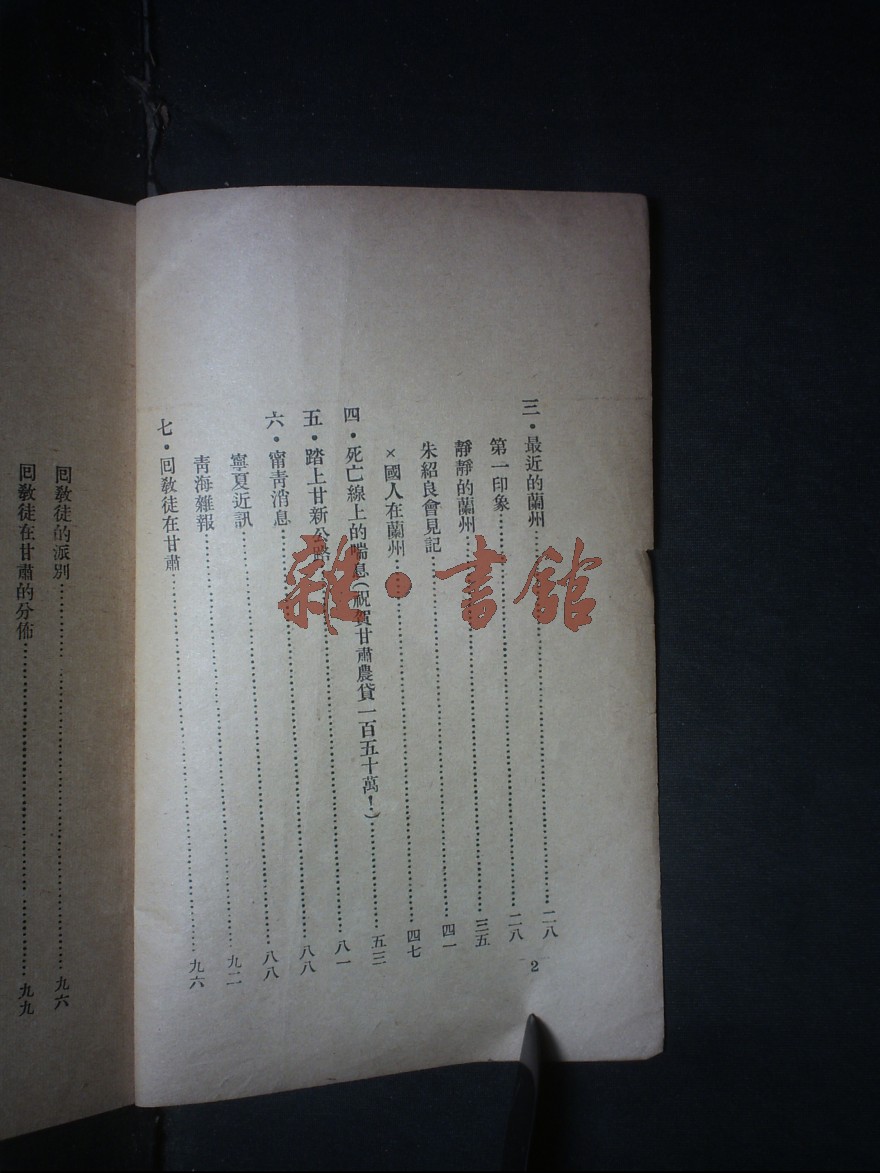 三・最近的蘭州……二八
第一印象……二八
靜靜的蘭州……三五
朱紹良會見記……四一
×國人在蘭州……四七
四・死亡線上的喘息(祝賀甘肅農貸一百五十萬！)……五三
五・踏上甘新公路……八一
六・甯青消息……八八
寧夏近訊……九二
青海雜報……九六
七・回教徒在甘肅……
回教徒的派別……九六
回教徒在甘肅的分佈……九九
2
雜・書館